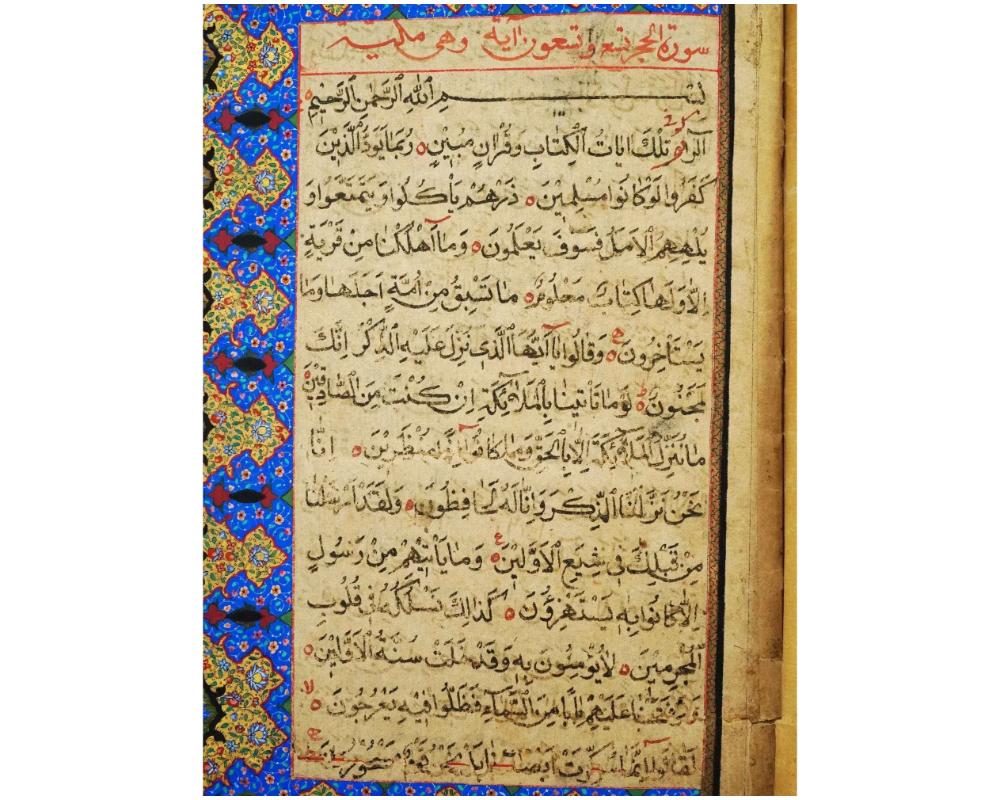 سورة الحجر تسع وتسعون آية وهي مكية
بسم الله الرحمن الرحيم
الر تلك ايات الكتاب وقران مبين ربما يود الذين
كفروا لو كانوا مسلمين ذرهم يأكلوا ويتمتعوا و
يلههم الامل فسوف يعلمون وما اهلكنا من قرية
الا ولها كتاب معلوم ما تسبق من امة اجلها وما
يستأخرون وقالوا يا ايها الذي نزل عليه الذكر انك
لمجنون لو ما تأتينا بالملائكة ان كنت من الصادقين
ما ننزل الملائكة الا بالحق وما كانوا اذا منظرين انا
نحن نزلنا الذكر وانا له لحافظون ولقد ارسلنا
من قبلك في شيع الاولين وما يأتيهم من رسول
الا كانوا به يستهزؤن كذلك نسلكه في قلوب
المجرمين لا يؤمنون به وقد خلت سنة الاولين
ولو فتحنا عليهم بابا من السماء فظلوا فيه يعرجون
لقالوا انما سكرت ابصارنا بل نحن قوم مسحورون